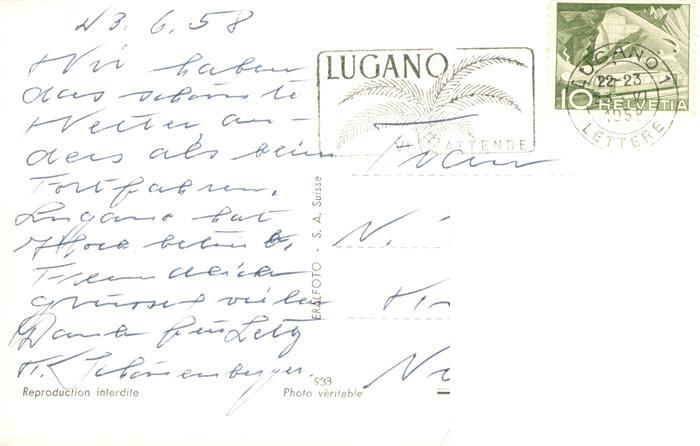 23.6.58
Wir haben
das schönste
Wetter an-
ders als beim
Fortfahren.
Lugano hat
Freundlich
grüsst vielen
Dank für
H. Schönenberger.
LUGANO
VI ATTENDE
LUGANO 1
22-23
VI
1958
LETTERE
10 HELVETIA
N.
ERALFOTO - S. A. Suisse
933
Reproduction interdite
Photo vèritable